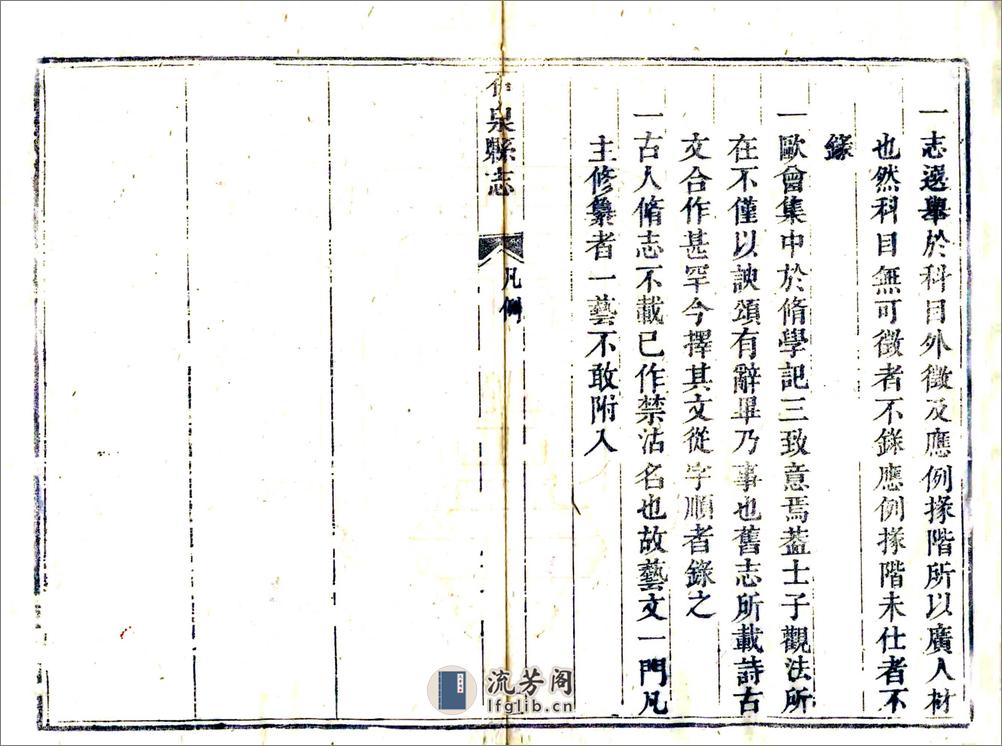 一志選舉於科目外徵及應例掾階所以廣人材
也然科目無可徵者不錄應例掾階未仕者不
錄
一歐曾集中於脩學記三致意焉葢士子觀法所
在不僅以諛頌有辭畢乃事也舊志所載詩古
文合作甚罕今擇其文從字順者錄之
一古人脩志不載已作禁沽名也故藝文一門凡
主修纂者一藝不敢附入
泉縣志
凡例
流芳阁
lfglib.cn